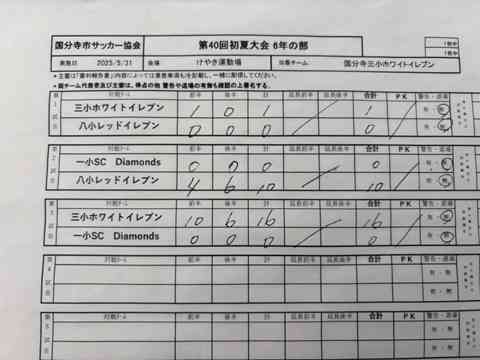 国分寺市サッカー協会 第40回初夏大会 6年の部
実施日 2025/5/31 会場 けやき運動場 当番チーム: 国分寺三小ホワイトイレブン
*主審は「審判報告書」内容によっては重要事項も記載し、一緒に配信してください。
*両チーム代表者及び主審は、得点の他 警告や退場の有無も確認の上署名する。
第1試合 対戦チーム 前半 後半 計 延長前半 延長後半 合計 PK 警告・退場
三小ホワイトイレブン 1 0 1 1 有・無
八小レッドイレブン 0 0 0 0 有・無
第2試合 対戦チーム 前半 後半 計 延長前半 延長後半 合計 PK 警告・退場
一小SC Diamonds 0 0 0 0 有・無
八小レッドイレブン 4 6 10 10 有・無
第3試合 対戦チーム 前半 後半 計 延長前半 延長後半 合計 PK 警告・退場
三小ホワイトイレブン 10 6 16 16 有・無
一小SC Diamonds 0 0 0 0 有・無
第4試合 対戦チーム 前半 後半 計 延長前半 延長後半 合計 PK 警告・退場
有・無
有・無
第5試合 対戦チーム 前半 後半 計 延長前半 延長後半 合計 PK 警告・退場
有・無